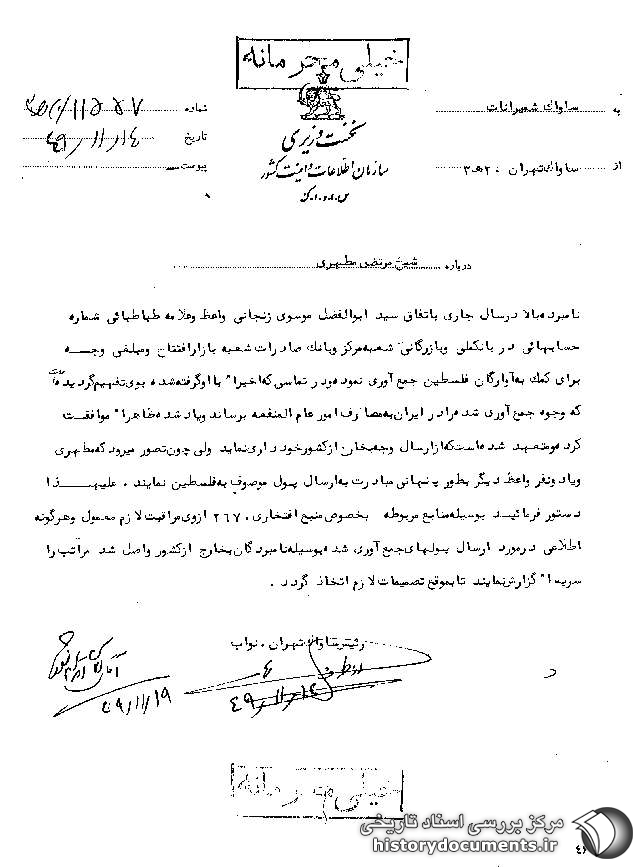 خیلی محرمانه
به ساواك شميرانات
از ساواك تهران ، ۳ه۲
نخست وزیری
سازمان اطلاعات و امنیت کشور
س.ا.و.ا.ک
شماره
تاریخ ۴۹/۱۱/۱۴
پیوست
درباره شیخ مرتضی مطهری
نامبرده بالا در سال جاری باتفاق سید ابوالفضل موسوی زنجانی واعظ و علامه طباطبائی شماره
حسابهائی در بانک ملی و بازرگانی شعبه مرکز و بانك صادرات شعبه بازار افتتاح و مبلغی وجـــه
برای کمك به آوارگان فلسطین جمع آوری نموده و در تماسی که اخیرا" با او گرفته شده بوی تفهیم گردیده
که وجوه جمع آوری شده را در ایران به مصارف امور عام المنفعه برساند و یاد شده ظاهرا" موافقت
کرده و متعهد شده است که از ارسال وجه بخارج از کشور خود داری نماید ولی چون تصور میرود که مطهری
و یا دو نفر واعظ دیگر بطور پنهانی مبادرت به ارسال پول موصوف به فلسطین نمایند . علیهــــذا
دستور فرمائید بوسیله منابع مربوطه بخصوص منبع افتخاری ۲۶۷ از وی مراقبت لازم معمول و هرگونه
اطلاعی در مورد ارسال پولهای جمع آوری شده بوسیله نامبردگان بخارج از کشور واصل شد مراتب را
سریعا" گزارش نمایند تا بموقع تصمیمات لازم اتخاذ گردد .
رئیس ساواك تهران . نواب
۴۹/۱۱/۱۴
۴۹/۱۱/۱۹
خیلی محرمانه
مرکز بررسی اسناد تاریخی
historydocuments.ir